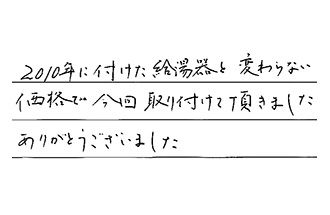 2010年に付けた給湯器と変わらない
価格で今回取り付けて頂きました
ありがとうございました